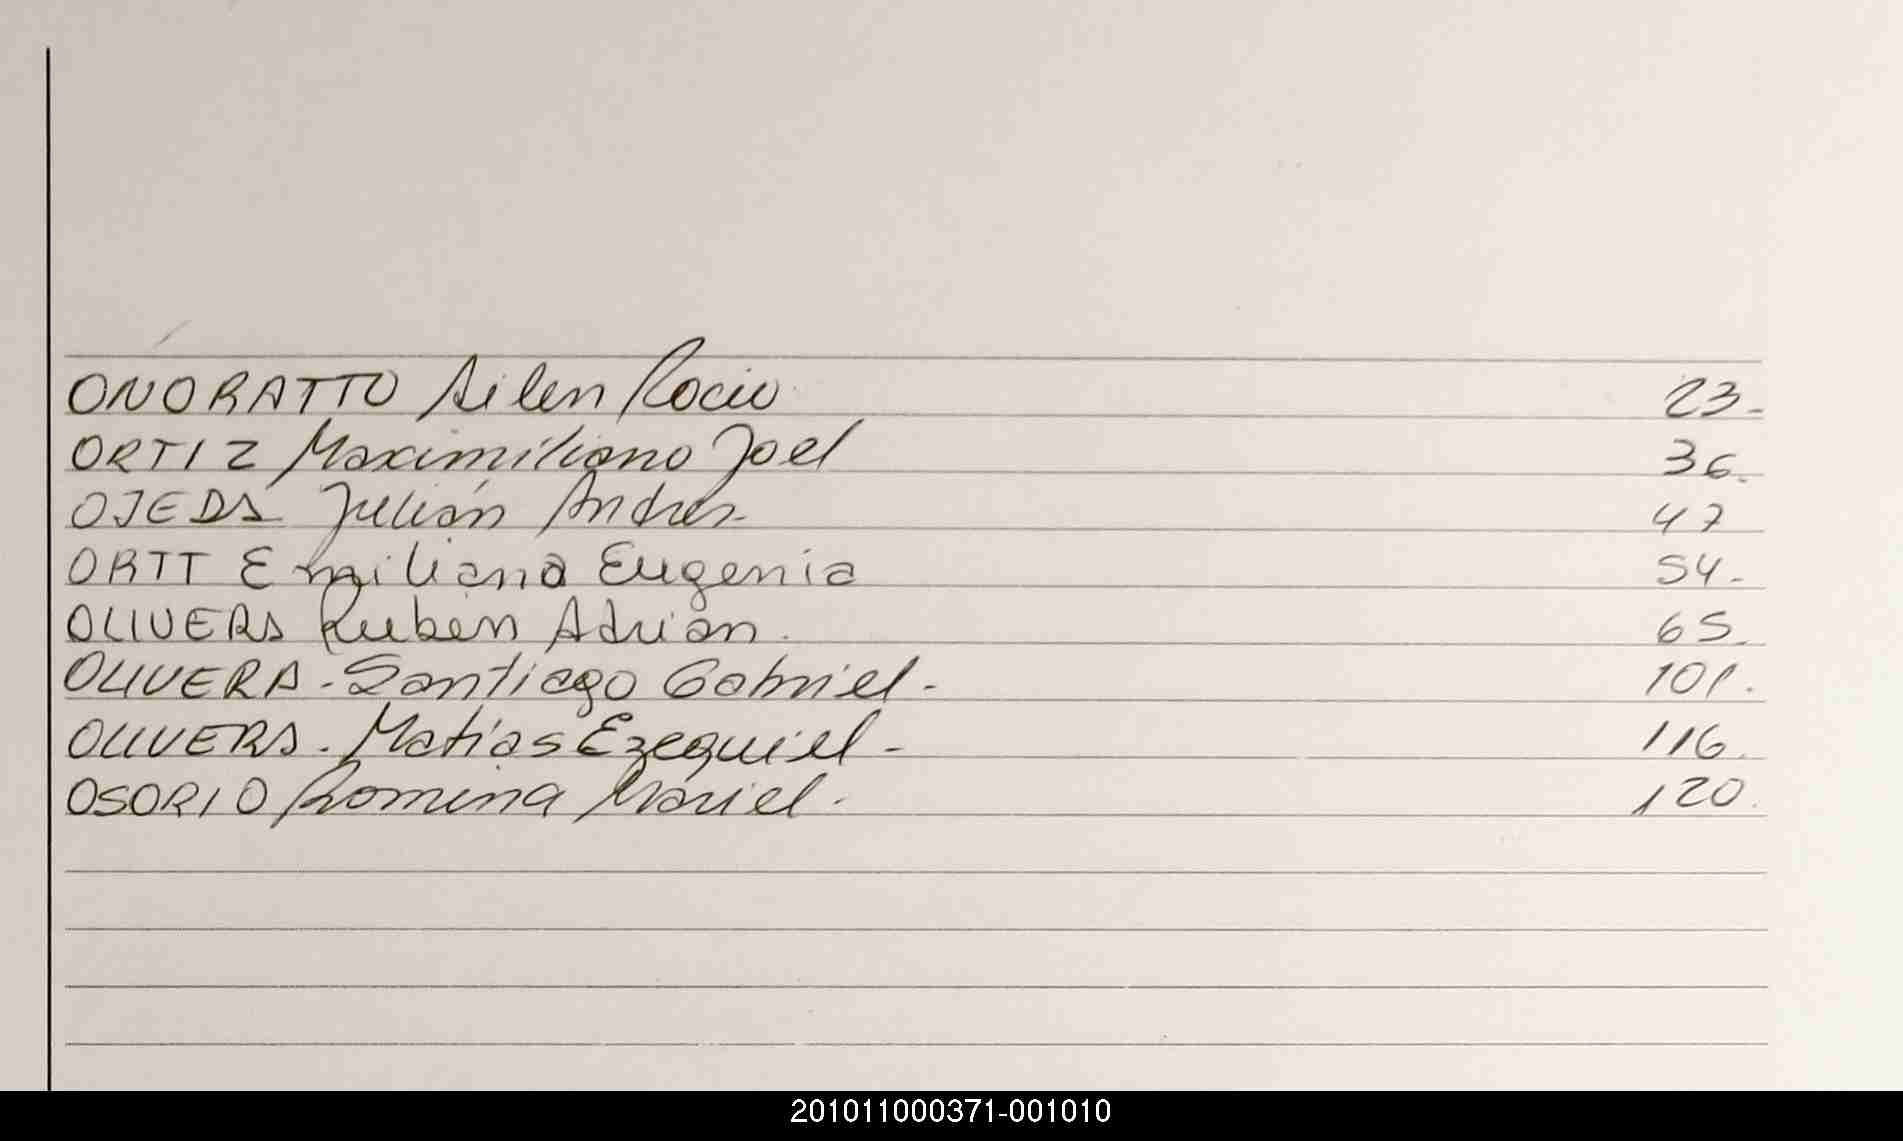 ONORATTO Ailen Rocio 23-
ORTIZ Maximiliano Joel 36.
OJEDA Julián Andres- 47
ORTT Emiliana Eugenia 54-
OLIVERA Rubén Adrian. 65-
OLIVERA-Santiago Gabriel- 101.
OLIVERA. Matías Ezequiel- 116.
OSORIO Romina Mariel. 120.
201011000371-001010